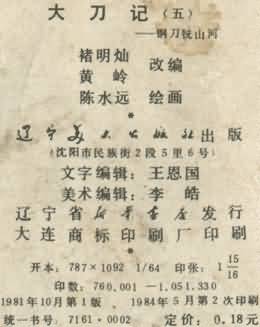 大刀记（五）
——钢刀抚山河
褚明灿
黄岭 改编
陈水远 绘画
*
辽宁美术出版社出版
（沈阳市民族街2段5里6号）
文字编辑：王恩国
美术编辑：李皓
辽宁省新华书店发行
大连商标印刷厂印刷
*
开本：787×1092 1/64 印张：1 15/16
印数：760,001—1,051,330
1981年10月第1版 1984年5月第2次印刷
统一书号：7161·0002 定价：0.18元